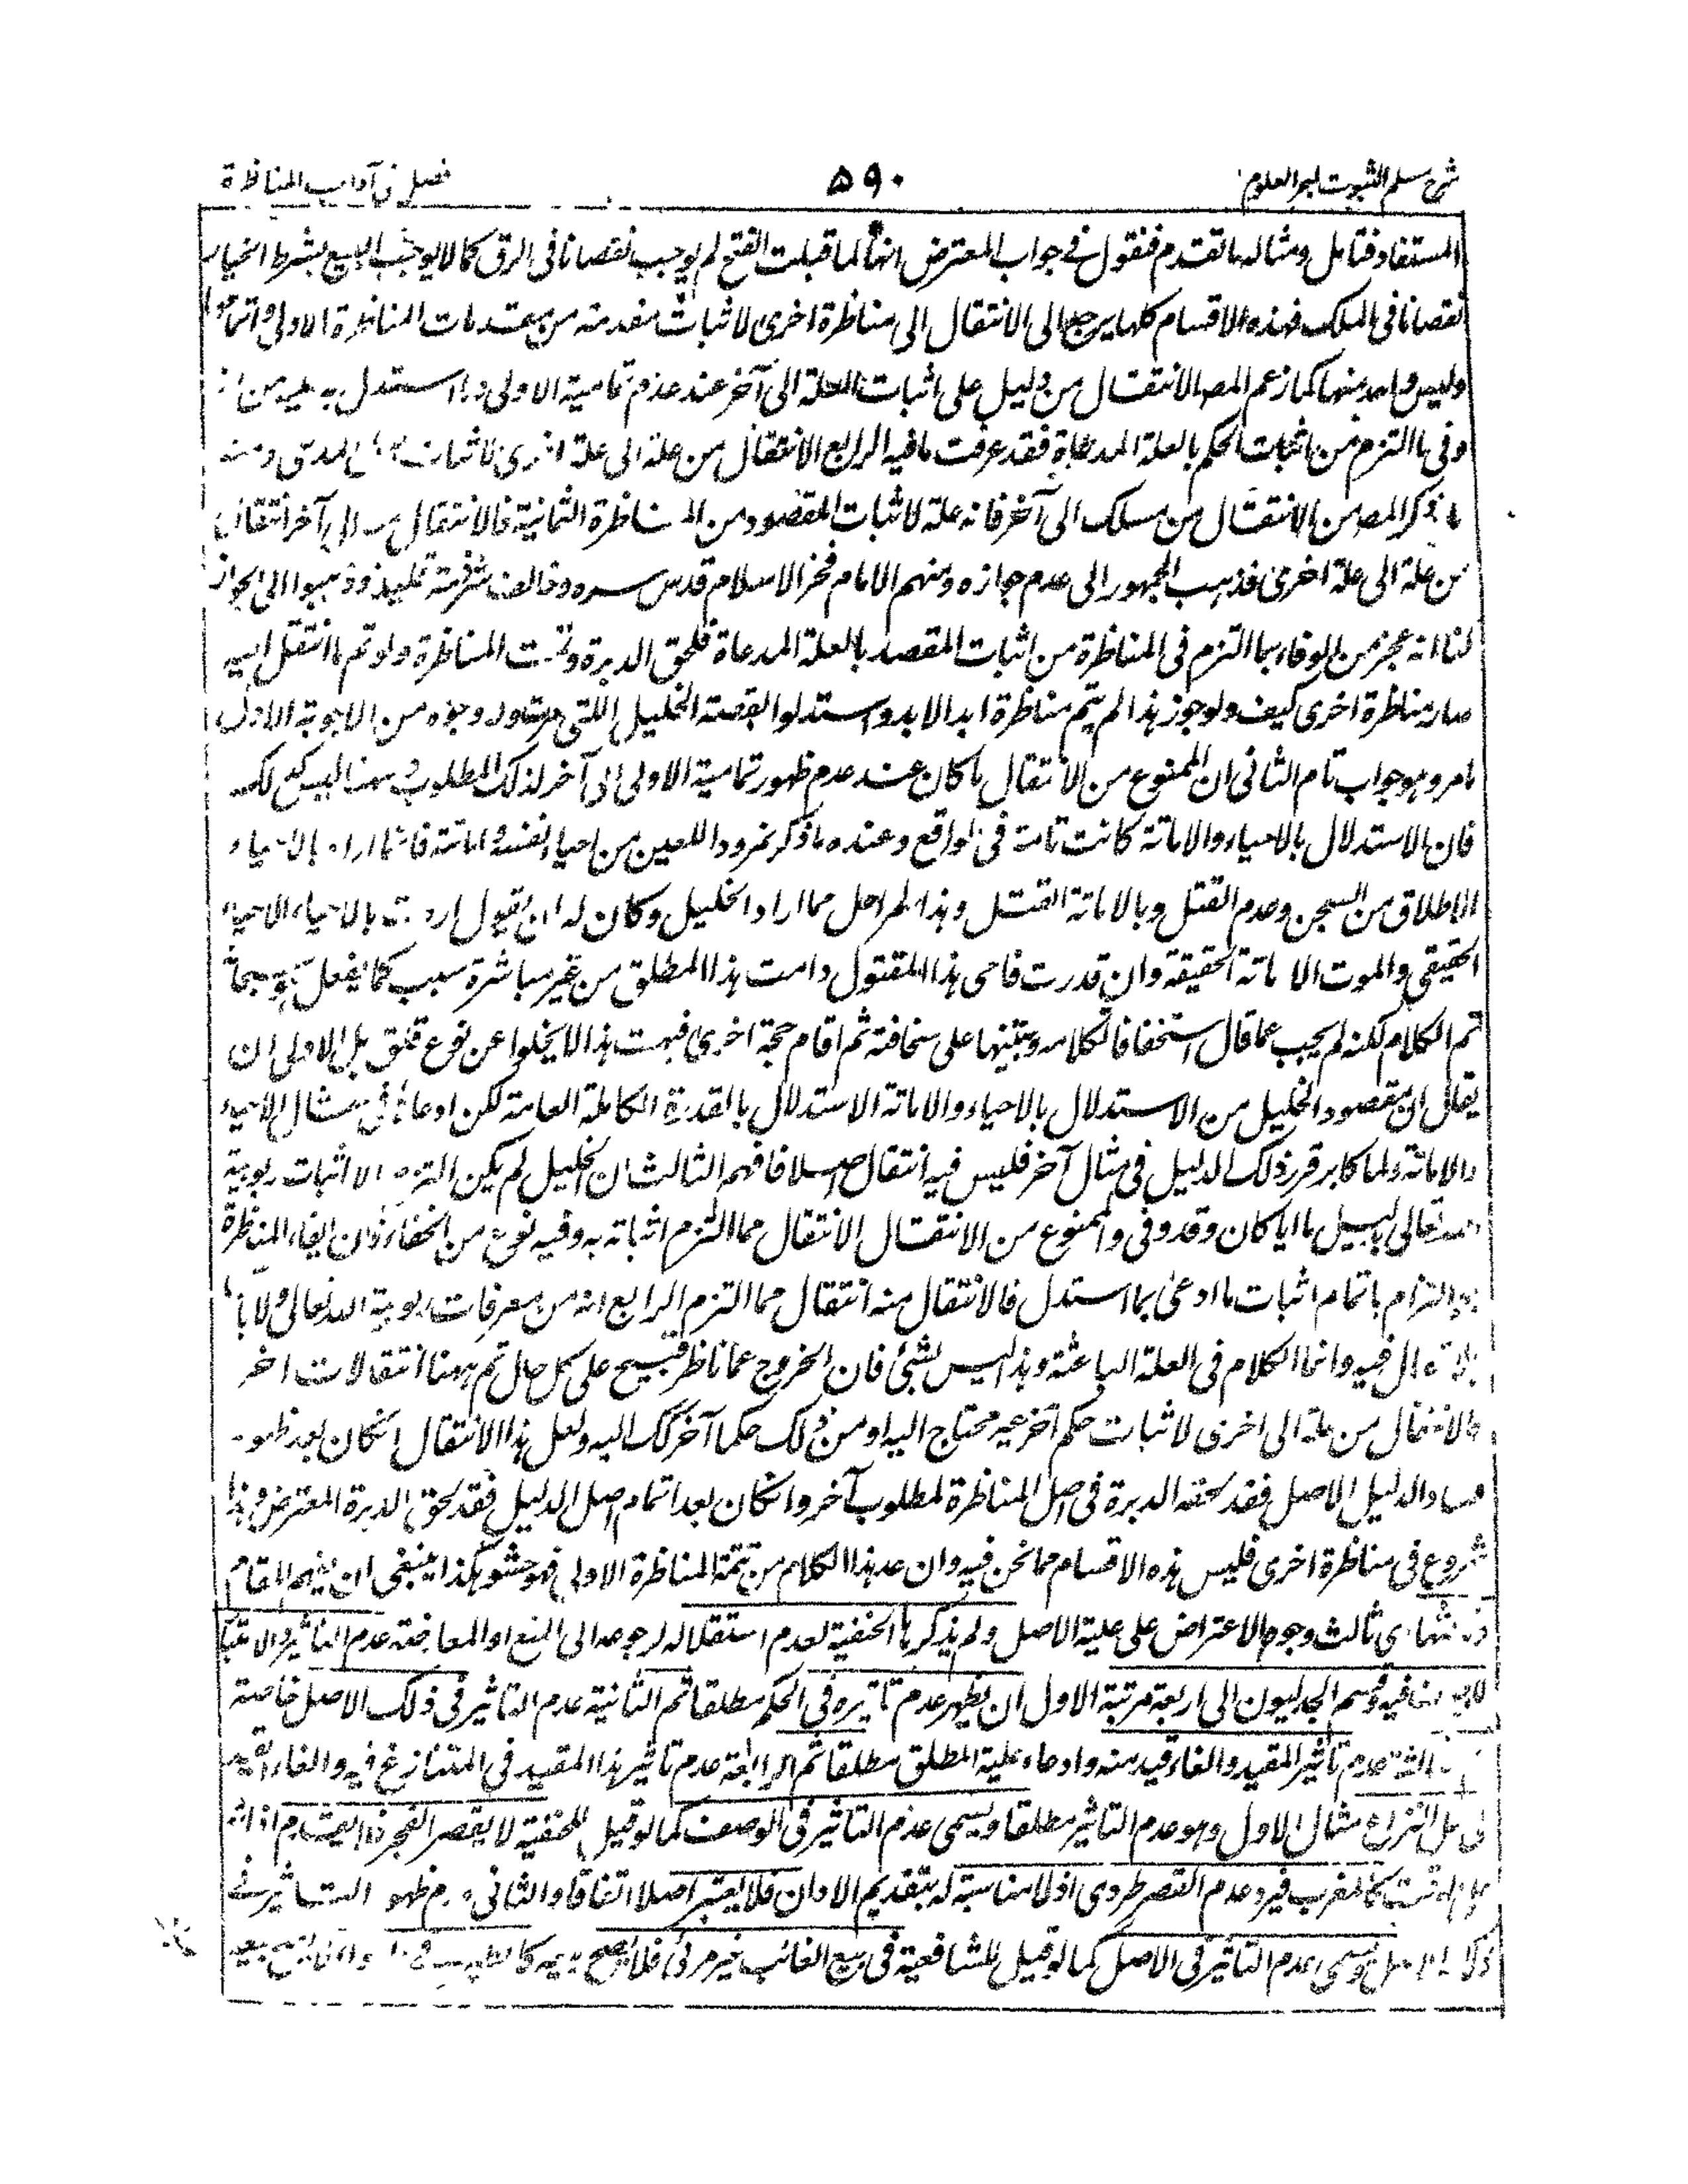 شرح مسلم الثبوت لبحر العلوم
۵۹۰
فصل فی آداب المناظرة
المستفاد فتامل ومثاله ما تقدم فنقول فی جواب المعترض انها لما قبلت الفسخ لم یوجب نقصانا فی الرق کما لا یوجب البیع بشرط الخیار
نقصانا فی الملک فهذه الاقسام کلها یرجع الی الانتقال الی مناظرة اخری لاثبات مقدمة من مقدمات المناظرة الاولی
ولیس واحد منها کما زعم المصـ الانتقال من دلیل علی اثبات العلة الی آخر عند عدم تمامیة الاولی استدل به علیه من
وفی ما التزم من اثبات الحکم بالعلة المدعاة فقد عرفت ما فیه الرابع الانتقال من علة الی علة اخری لاثبات المدعی ومنه
ما ذکر المصـ من الانتقال من مسلک الی آخر فانه علة لاثبات المقصود من المناظرة الثانیة فالانتقال الی آخر انتقال
من علة الی علة اخری فذهب الجمهور الی عدم جوازه ومنهم الامام فخر الاسلام قدس سره وخالف شرذمة قلیلة وذهبوا الی الجواز
لنا انه عجز من الوفاء بما التزم فی المناظرة من اثبات المقصد بالعلة المدعاة فلحق الدبرة وتمت المناظرة ولو تم ما انتقل الیه
صار مناظرة اخری کیف ولو جوز هذا لم یتم مناظرة ابد الابد واستدلوا بقصة الخلیل اللتی وجوه من الاجوبة الاول
ما مر وهو جواب تام الثانی ان الممنوع من الانتقال ما کان عند عدم ظهور تمامیة الاولی الی آخر لذلک المطلوب وههنا لیس کذلک
فان الاستدلال بالاحیاء والاماتة کانت تامة فی الواقع وعنده ما ذکر نمرود اللعین من احیاء نفسه واماتته فانما اراد بالاحیاء
الاطلاق من السجن وعدم القتل وبالاماتة القتل وهذا بمراحل مما اراد الخلیل وکان له ان یقول اردت بالاحیاء الاحیاء
الحقیقی والموت الاماتة الحقیقة وان قدرت فاحی هذا المقتول وامت هذا المطلق من غیر مباشرة سبب کما یفعل ربی سبحانه
تم الکلام لکنه لم یجب عما قال استخفافا لکلامه وتنبیها علی سخافته ثم اقام حجة اخری فبهت هذا لا یخلوا عن نوع قلق بل الاولی ان
یقال ان مقصود الخلیل من الاستدلال بالاحیاء والاماتة الاستدلال بالقدرة الکاملة العامة لکن ادعاه فی مثال الاحیاء
والاماتة ولما کابر قرر ذلک الدلیل فی مثال آخر فلیس فیه انتقال اصلا فافهم الثالث ان الخلیل لم یکن التزم الا اثبات ربوبیة
الله تعالی بالسبیل ما ایا کان وقد وفی والممنوع من الانتقال الانتقال مما التزم اثباته به وفیه نوع من الخفاء فان ایفاء المناظرة
التزام باتمام اثبات ما ادعی بما استدل فالانتقال منه انتقال مما التزم الرابع انه من معرفات ربوبیة الله تعالی ولا باس
بالانتقال فیه وانما الکلام فی العلة الباعثة وهذا لیس بشیٔ فان الخروج عما ناظر قبیح علی کل حال ثم ههنا انتقالات اخر
والانتقال من علة الی اخری لاثبات حکم آخر غیر محتاج الیه او من ذلک حکما آخر کذلک الیه ولعل هذا الانتقال ان کان بعد ظهور
فساد الدلیل الاصل فقد لحقه الدبرة فی اصل المناظرة لمطلوب آخر وان کان بعد اتمام اصل الدلیل فقد لحق الدبرة المعترض وهذا
شروع فی مناظرة اخری فلیس هذه الاقسام مما نحن فیه وان عد هذا الکلام من تتمة المناظرة الاولی فهو حشو هکذا ینبغی ان یفهم المقام
ثالث وجوه الاعتراض علی علیة الاصل ولم یذکرها الحنفیة لعدم استقلاله لرجوعه الی المنع او المعارضة عدم التاثیر والاعتبار
وقسم الجدلیون الی اربعة مرتبة الاول ان یظهر عدم تاثیره فی الحکم مطلقا ثم الثانیة عدم التاثیر فی ذلک الاصل خاصة
الثالثة عدم تاثیر المقید والغاء قید منه وادعاء علیة المطلق مطلقا ثم الرابعة عدم تاثیر هذا المقید فی المتنازع فیه والغاء القید
فی محل النزاع مثال الاول وهو عدم التاثیر مطلقا ویسمی عدم التاثیر فی الوصف کما لو قیل للحنفیة لا یقصر الفجر فلا یقدم اذانه
کالمغرب فیرد عدم القصر طردی اذ لا مناسبة له بتقدیم الاذان فلا یعتبر اصلا اتفاقا والثانی عدم ظهور التاثیر فی
ذلک الاصل ویسمی عدم التاثیر فی الاصل کما لو قیل للشافعیة فی بیع الغائب غیر مرئی فلا یصح بیعه کالطیر فی